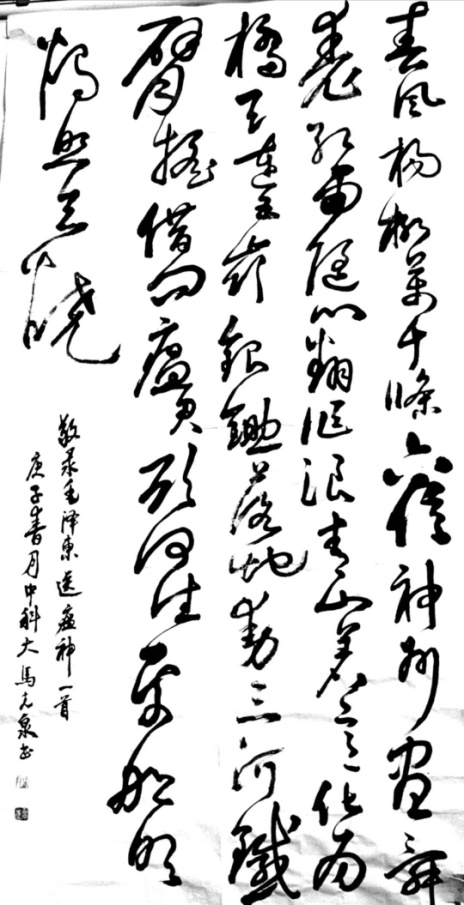 春風楊柳萬千條六億神州盡舜
堯紅雨随心翻作浪青山着意化为
橋天連五嶺銀鋤落地動三河鐵
臂摇借问瘟君欲何往紙船明
燭照天燒
敬录毛泽東送瘟神一首
庚子春月中科大馬泉书